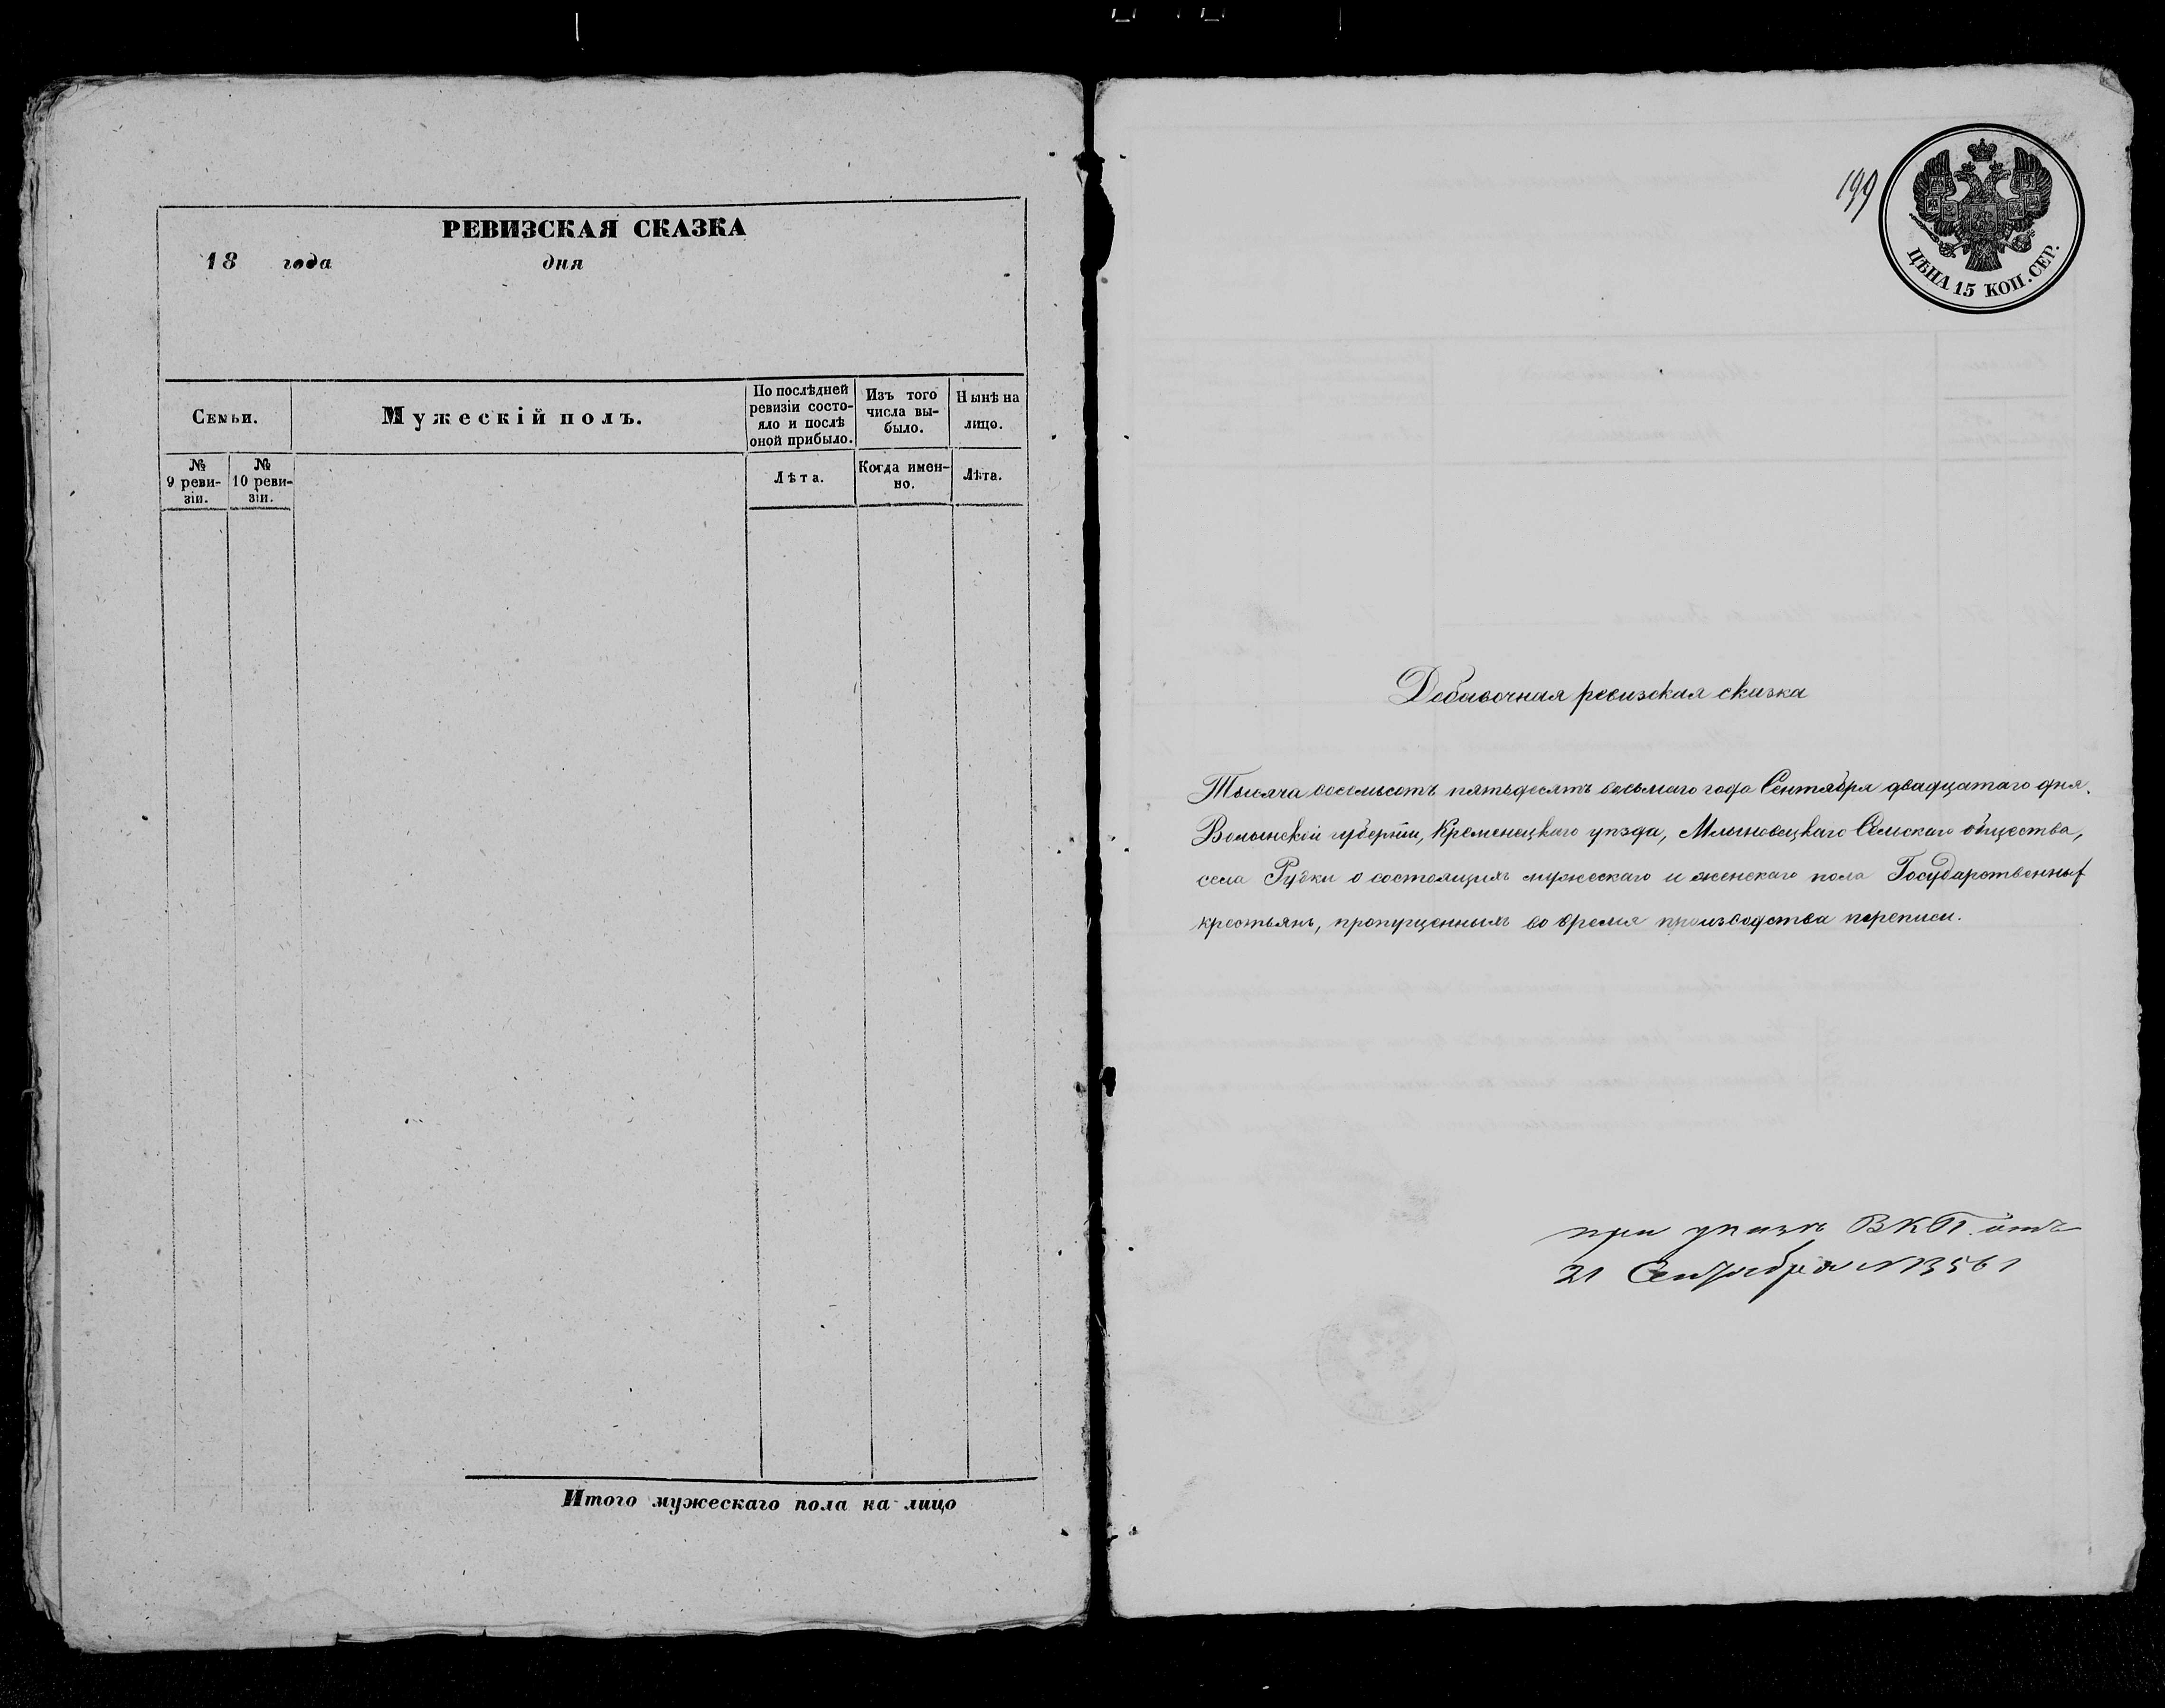 РЕВИЗСКАЯ СКАЗКА
18 года дня
Семьи.
Мужескій полъ.
По послѣдней ревизіи состо-
яло и послѣ
оной прибыло.
Изъ того
числа вы-
было.
Нынѣ на
лицо.
№
9 реви-
зіи.
№
10 реви-
зіи.
Лѣта.
Когда имен-
но.
Лѣта.
Итого мужескаго пола на лицо
199
ЦѢНА 15 КОП. СЕР.
Добавочная ревизская сказка
Тысяча восемьсотъ пятьдесятъ восьмаго года Сентября двадцатаго дня.
Волынской губерніи, Кременецкаго уѣзда, Млыновецкаго Сельскаго общества,
села Рудки о состоящихъ мужескаго и женскаго пола Государственныхъ
крестьянъ, пропущенныхъ во время производства переписи.
при указѣ В К П. отъ
21 Сентября № 13561